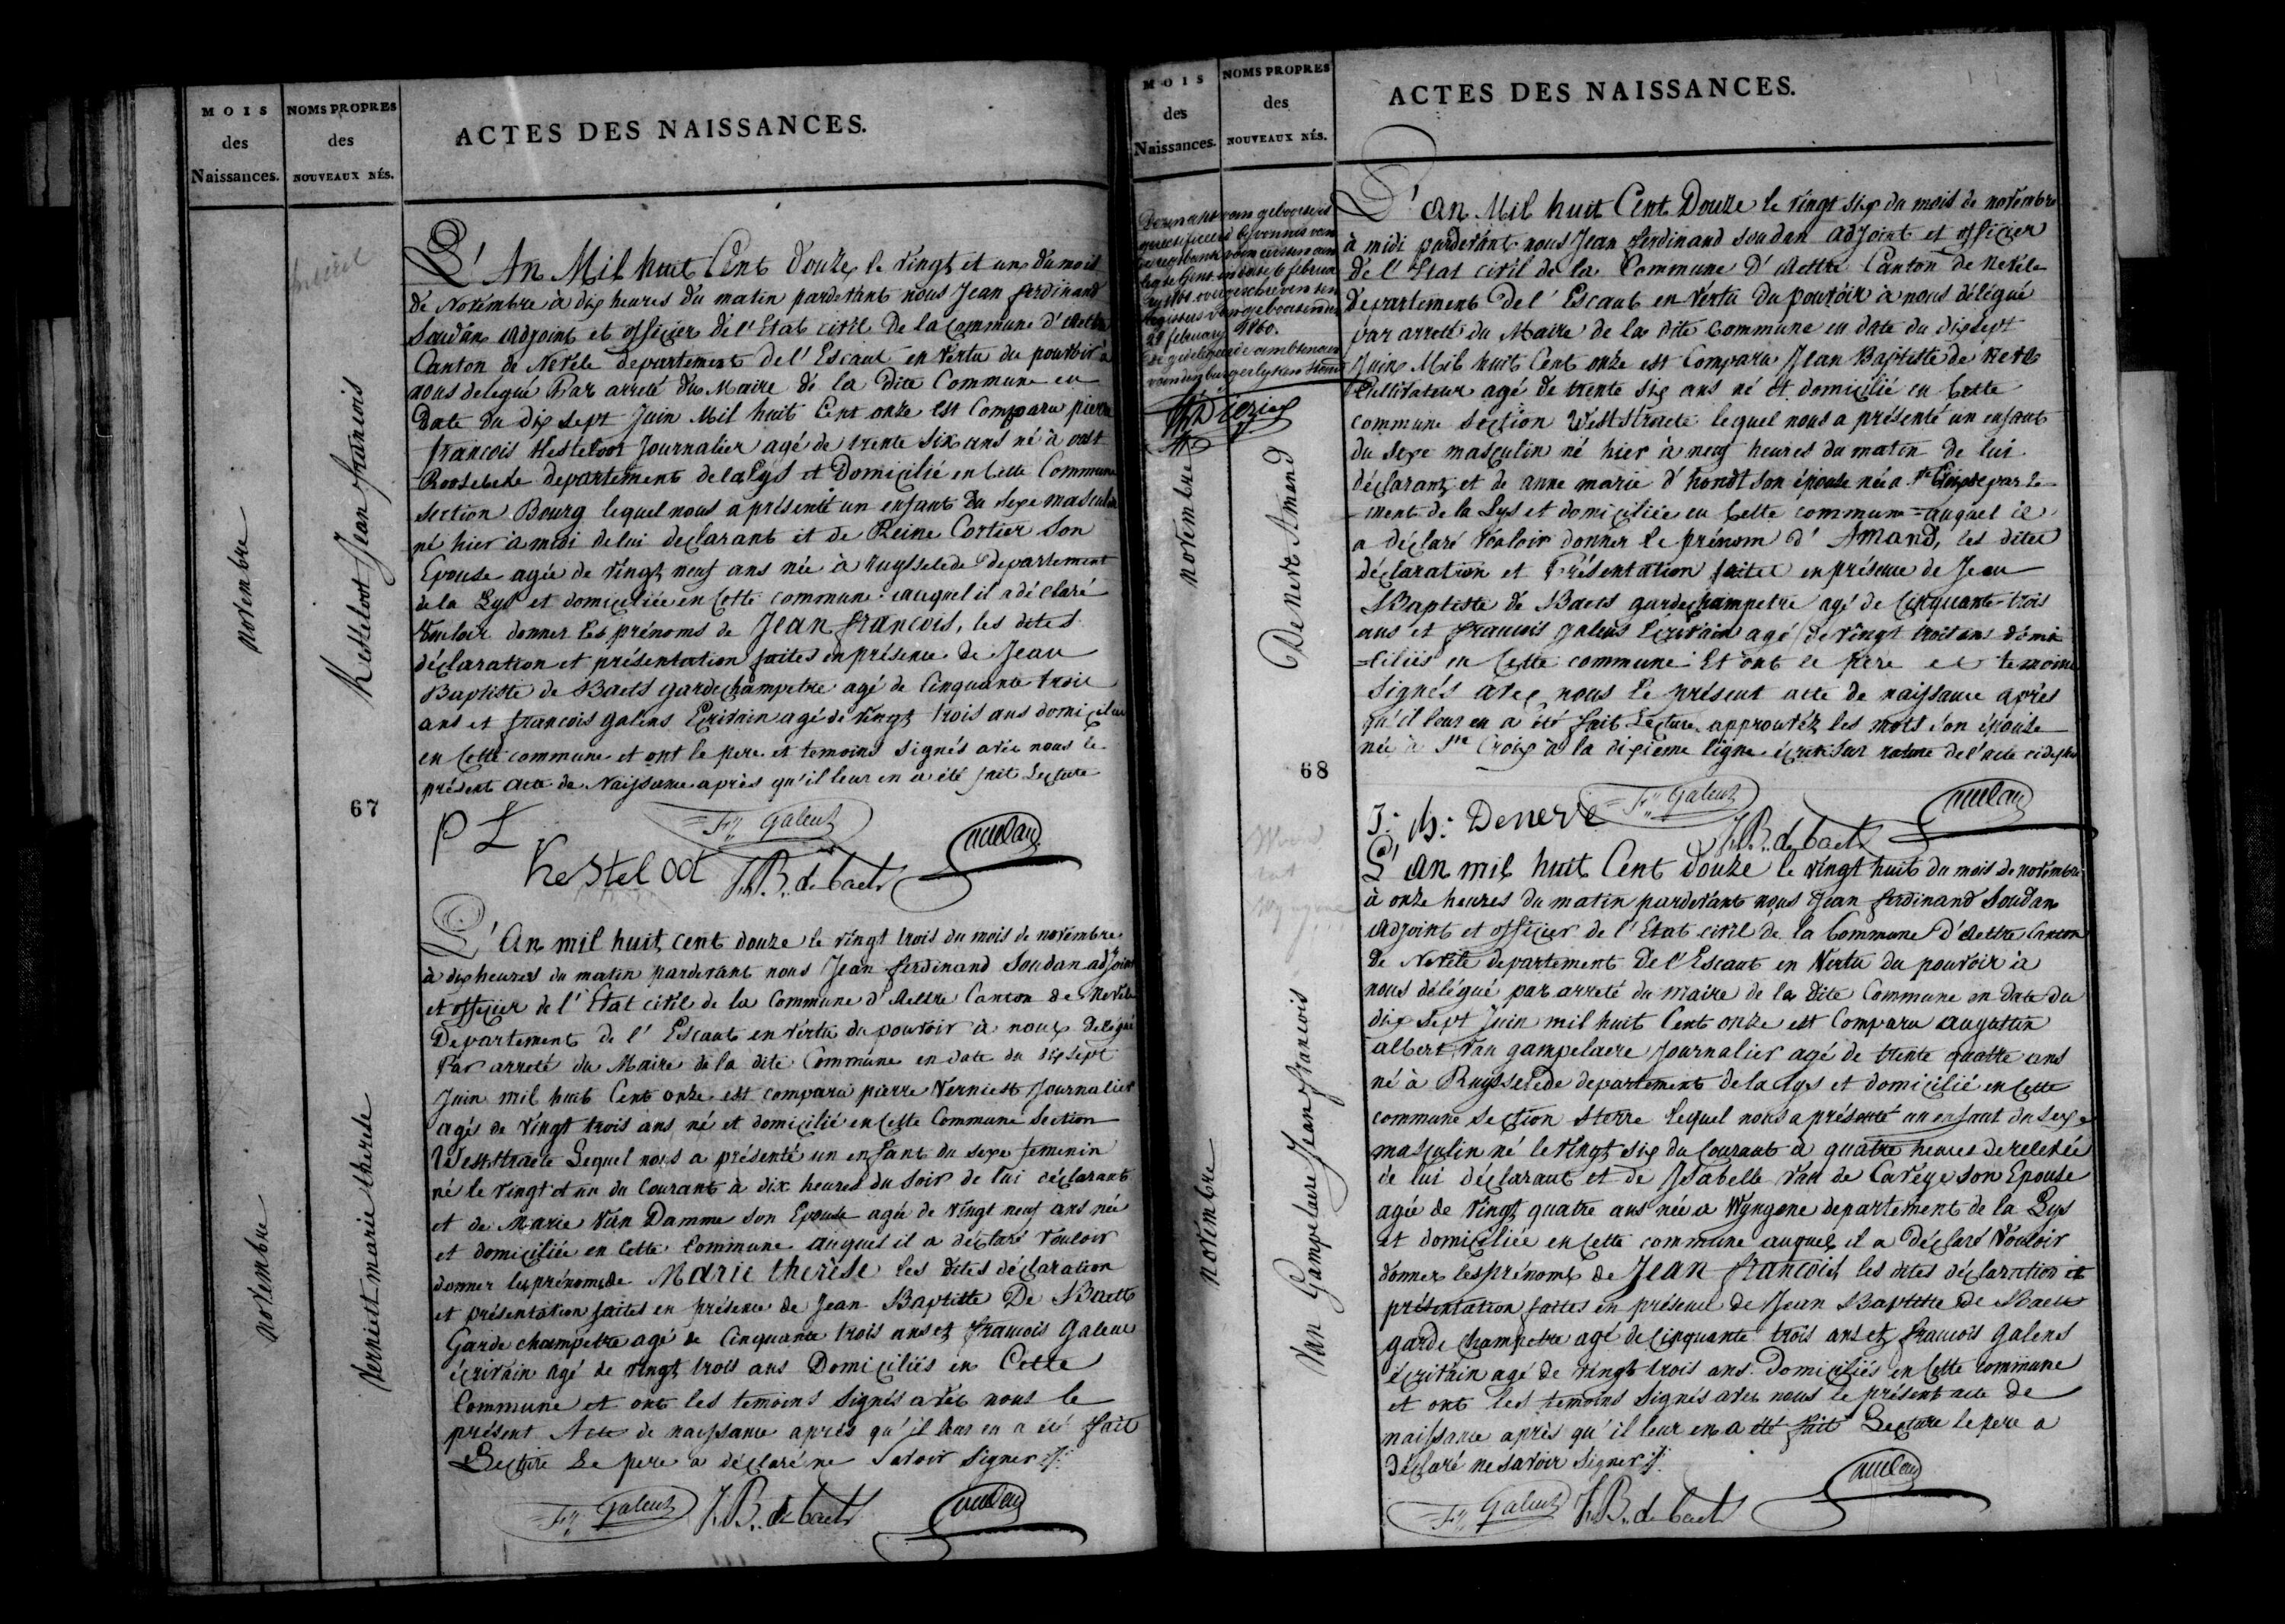 MOIS
des
Naissances.
NOMS PROPRES
des
NOUVEAUX NÉS.
ACTES DES NAISSANCES.
novembre
Kesteloot Jean francois
L'An Mil huit Cent Douze le vingt et un du mois
de Novembre à dix heures du matin pardevant nous Jean ferdinand
Soudan Adjoint et officier de l'Etat civil de la commune d'Aeltre
Canton de Nevele departement de l'Escaut en vertu du pouvoir à
nous delegué Par arreté du Maire de la dite Commune en
Date du dix sept Juin Mil huit Cent onze est Comparu pierre
francois Kesteloot Journalier agé de trente six ans né à oost
Roosebeke departement de la Lys et Domicilié en Cette Commune
section Bourg lequel nous a présenté un enfant du sexe masculin
né hier à midi de lui declarant et de Reine Cortier Son
Epouse agée de vingt neuf ans née à ruysselede departement
de la Lys et domiciliée en Cette commune auquel il a déclaré
vouloir donner les prénoms de Jean francois, les dites
déclaration et présentation faites en présence de Jean
Baptiste de Baets garde champetre agé de Cinquante trois
ans et francois galens Ecrivain agé de vingt trois ans domiciliés
en Cette commune et ont le pere et temoins signés avec nous le
présent acte de Naissance après qu'il leur en a été fait Lecture
67
P L
Kestel oot
F,, Galens
J.B. de baets
Soudan
novembre
Verniest marie therese
L'An mil huit cent douze le vingt trois du mois de novembre
à dix heures du matin pardevant nous Jean ferdinand Soudan adjoint
et officier de l'Etat civil de la Commune d'Aeltre Canton de Nevele
Departement de l'Escaut en vertu du pouvoir à nous delegué
Par arreté du Maire de la dite Commune en date du dix sept
Juin mil huit Cent onze est comparu pierre Verniest Journalier
agé de vingt trois ans né et domicilié en Cette Commune Section
Weststraete Lequel nous a présenté un enfant du sexe femenin
né le vingt et un du Courant à dix heures du soir de lui déclarant
et de Marie Van Damme son Epouse agée de vingt neuf ans née
et domiciliée en Cette Commune auquel il a déclaré vouloir
donner les prénoms de Marie therèse les dites déclaration
et présentation faites en présence de Jean Baptiste De Baets
Garde champetre agé de Cinquante trois ans et francois Galens
écrivain agé de vingt trois ans Domiciliés en Cette
Commune et ont les temoins signés avec nous le
présent Acte de naissance après qu'il leur en a été fait
Lecture Le pere a déclaré ne savoir signer
F,, Galens
J.B. de baets
Soudan
MOIS
des
Naissances.
NOMS PROPRES
des
NOUVEAUX NÉS.
ACTES DES NAISSANCES.
gerectificeerd by vonnis van
29 february 1860.
novembre
De neve Amand
L'An Mil huit Cent Douze le vingt six du mois de novembre
à midi pardevant nous Jean ferdinand soudan adjoint et officier
de l'Etat civil de la Commune d'Aeltre Canton de Nevele
departement de l'Escaut en vertu du pouvoir à nous délégué
par arreté du Maire de la dite Commune en date du dix sept
Juin Mil huit Cent onze est Comparu Jean Baptiste de Neve
Cultivateur agé de trente six ans né et domicilié en Cette
commune section Weststraete lequel nous a présenté un enfant
du sexe masculin né hier à neuf heures du matin de lui
déclarant et de anne marie d'hondt son épouse née a Ste Croix departe
-ment de la Lys et domiciliée en Cette commune auquel il
a déclaré vouloir donner le prénom d'Amand, les dites
déclaration et Présentation faites en présence de Jean
Baptiste de Baets garde champetre agé de Cinquante trois
ans et francois galens Ecrivain agé de vingt trois ans domi
-ciliés en Cette commune Et ont le pere et temoins
signés avec nous Le présent acte de naissance après
qu'il leur en a été fait Lecture approuvés les mots son épouse
née à Ste Croix à la dixieme ligne écrits sur rature de l'acte ci dessus
68
J: B: Deneve
F,, Galens
J.B. de baets
Soudan
novembre
Van Gampelaere Jean francois
L'An mil huit Cent Douze le vingt huit du mois de novembre
à onze heures du matin pardevant nous Jean ferdinand Soudan
Adjoint et officier de l'Etat civil de la Commune d'Aeltre Canton
De Nevele departement De l'Escaut en Vertu du pouvoir à
nous délégué par arreté du maire de la dite Commune en date du
dix sept Juin mil huit Cent onze est Comparu augustin
albert Van gampelaere Journalier agé de trente quatre ans
né à Ruysselede departement de la Lys et domicilié en Cette
commune Section sterre Lequel nous a présenté un enfant du Sexe
masculin né le vingt six du Courant à quatre heures de relevée
de lui déclarant et de Isabelle Van de Cavege son Epouse
agée de vingt quatre ans née a Wyngene departement de la Lys
et domiciliée en Cette commune auquel il a Déclaré Vouloir
donner les prénoms de Jean francois les dites déclaration et
présentation faites en présence de Jean Baptiste de Baets
garde Champetre agé de Cinquante trois ans et francois Galens
écrivain agé de vingt trois ans Domiciliés en Cette commune
et ont les temoins signés avec nous le présent acte de
naissance après qu'il leur en a été fait Lecture le pere a
Déclaré ne savoir signer
F,, Galens
J.B. de baets
Soudan